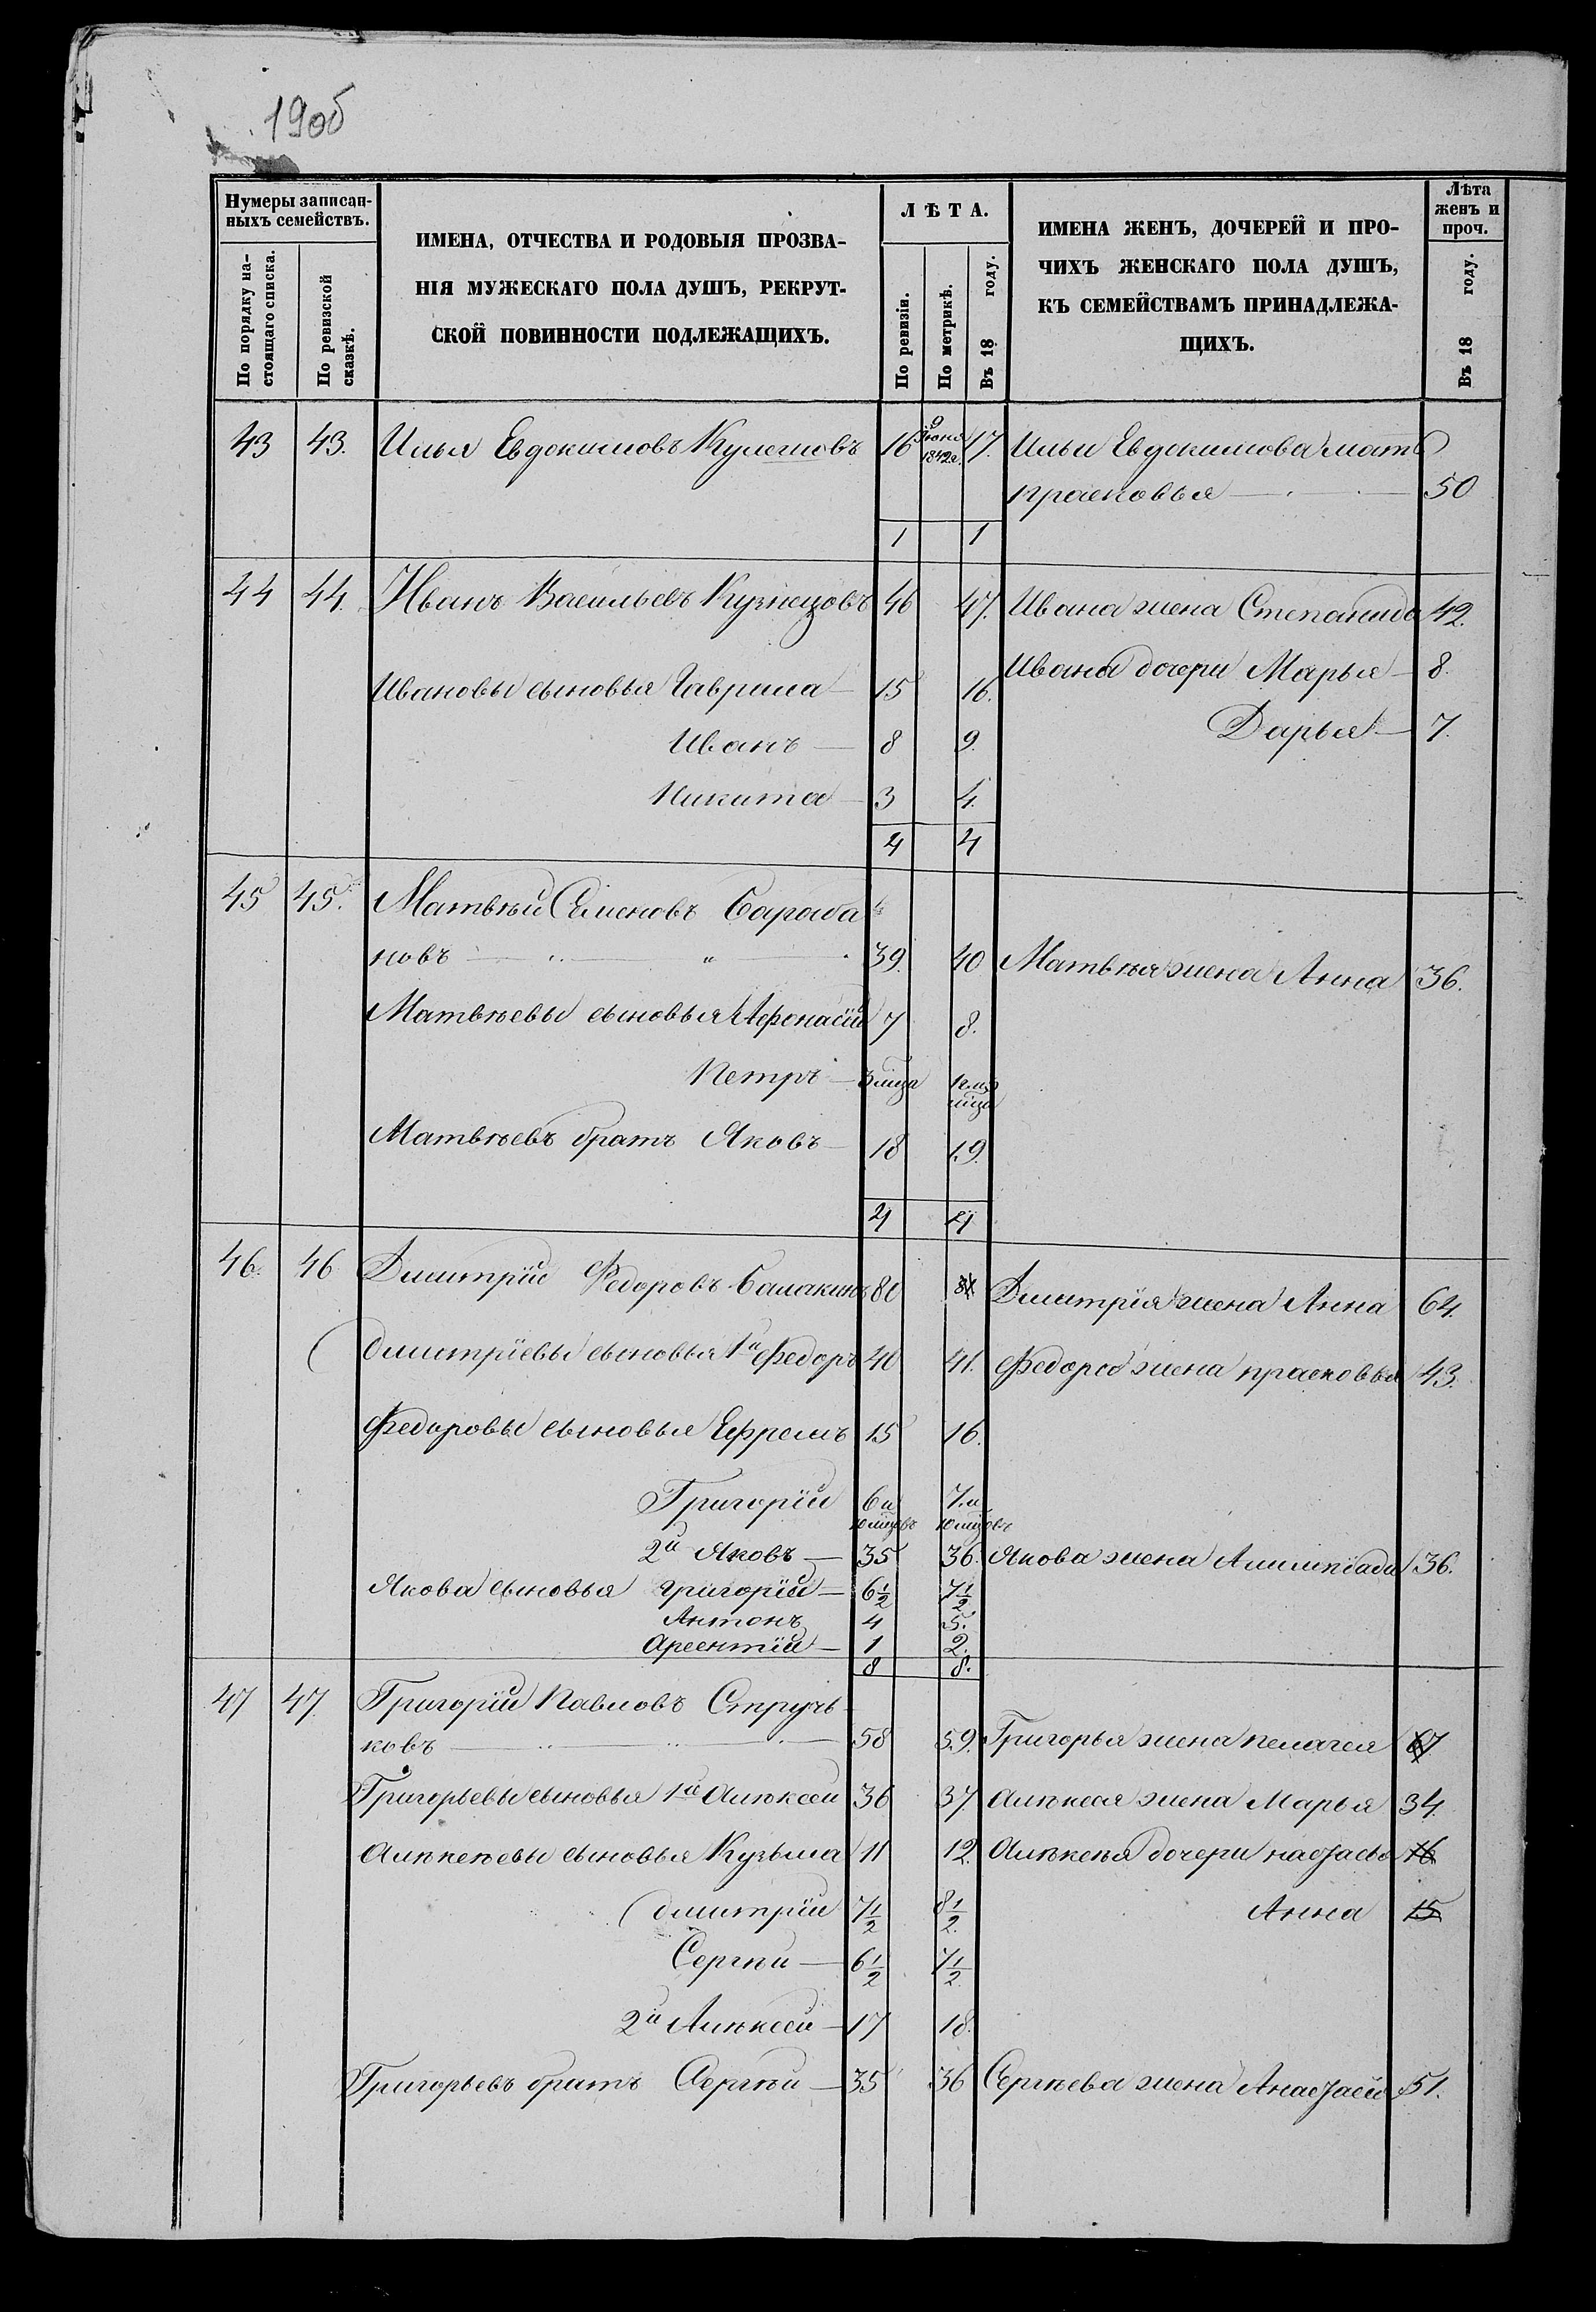 190б
Нумеры записан-
ныхъ семействъ.
По порядку на-
стоящаго списка.
По ревизской
сказкѣ.
ИМЕНА, ОТЧЕСТВА И РОДОВЫЯ ПРОЗВА-
НІЯ МУЖЕСКАГО ПОЛА ДУШЪ, РЕКРУТ-
СКОЙ ПОВИННОСТИ ПОДЛЕЖАЩИХЪ.
ЛѢТА.
По ревизіи.
По метрикѣ.
Въ 18 году.
ИМЕНА ЖЕНЪ, ДОЧЕРЕЙ И ПРО-
ЧИХЪ ЖЕНСКАГО ПОЛА ДУШЪ,
КЪ СЕМЕЙСТВАМЪ ПРИНАДЛЕЖА-
ЩИХЪ.
Лѣта
женъ и
проч.
Въ 18 году.
43 43. Илья Евдокимовъ Кулешовъ 16 9 Июня 1842г. 17. Ильи Евдокимова мать
прасковья 50
1 1
44 44. Иванъ Васильевъ Кузнецовъ 46 47. Ивана жена Степанида 42.
Ивановы сыновья Гаврила 15 16. Ивана дочери Марья 8.
Иванъ 8 9. Дарья 7.
Никита 3 4.
4 4
45 45. Матвѣй Семеновъ Бараба
новъ 39. 40 Матвѣя жена Анна 36.
Матвѣевы сыновья Афонасій 7 8.
Петръ 3 мца
Матвѣевъ братъ Яковъ 18 19.
4 4
46. 46 Димитрій Федоровъ Балакинъ 80 81 Димитрія жена Анна 64.
димитріевы сыновья 1й Федоръ 40 41. Федора жена прасковья 43.
Федоровы сыновья Ефремъ 15 16.
Григорій 6 и 10 мцовъ 7. и 10 мцовъ
2й Яковъ 35 36. Якова жена Алимпіада 36.
Якова сыновья григорій 6½ 7½
Антонъ 4 5.
Арсентій 1 2.
8 8.
47 47. Григорій Павловъ Стручь
ковъ 58 59. Григорья жена пелагея 67
Григорьевы сыновья 1й Алѣксей 36 37 Алѣксея жена Марья 34.
Алѣксѣевы сыновья Кузьма 11 12. Алѣксѣя дочери настасья 16
димитрій 7½ 8½ Анна 15
Сергѣй 6½ 7½
2й Алѣксей 17 18.
Григорьевъ братъ Сергѣй 35 36 Сергѣева жена Анастасія 51.